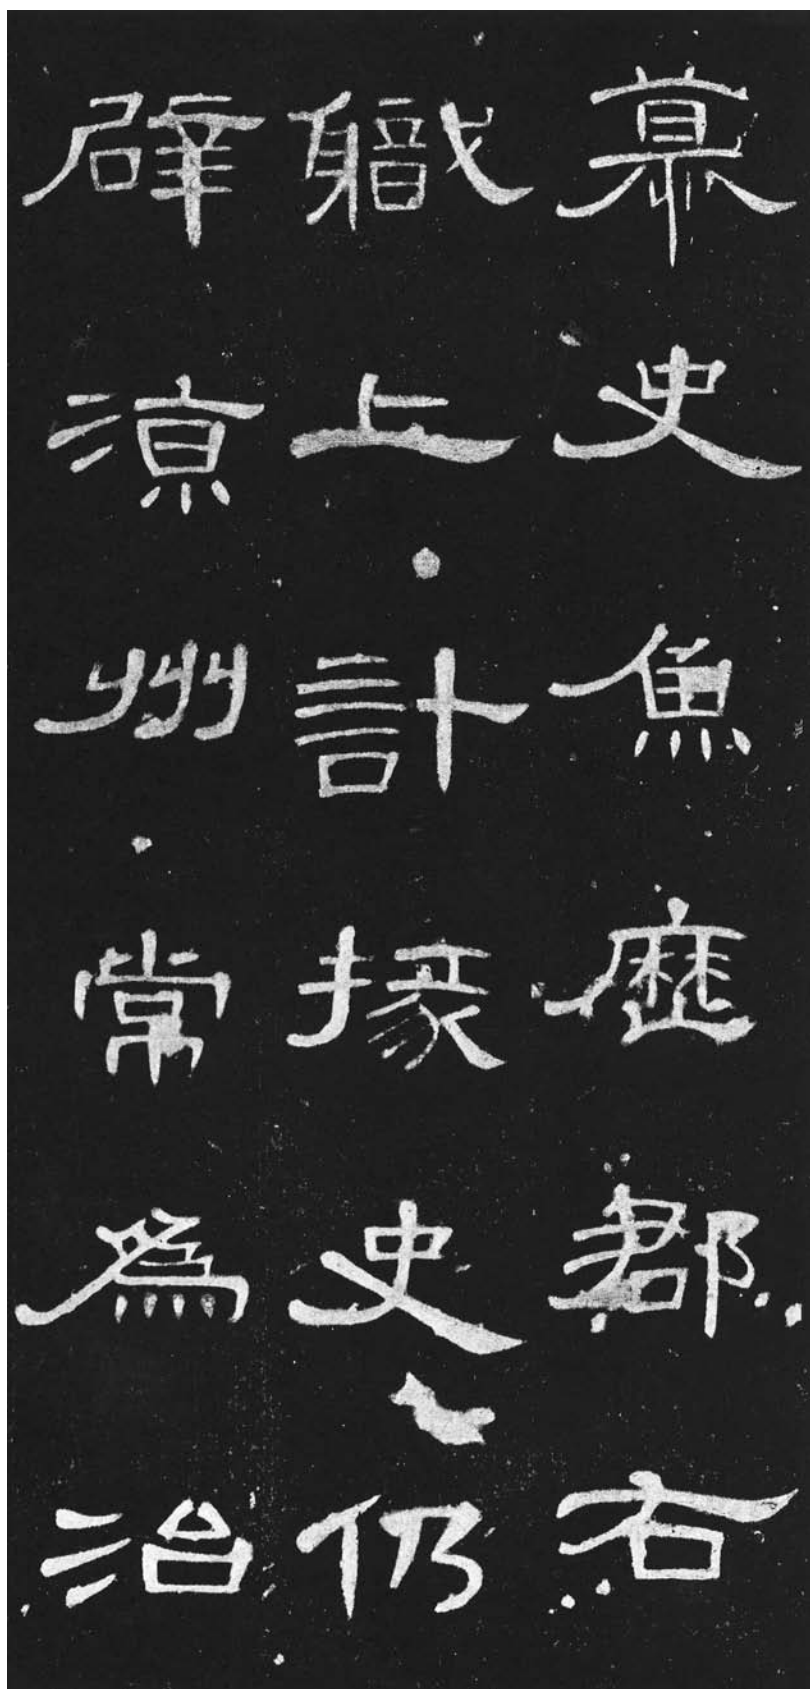 慕史魚歷郡右
職上計掾史仍
辟涼州常為治